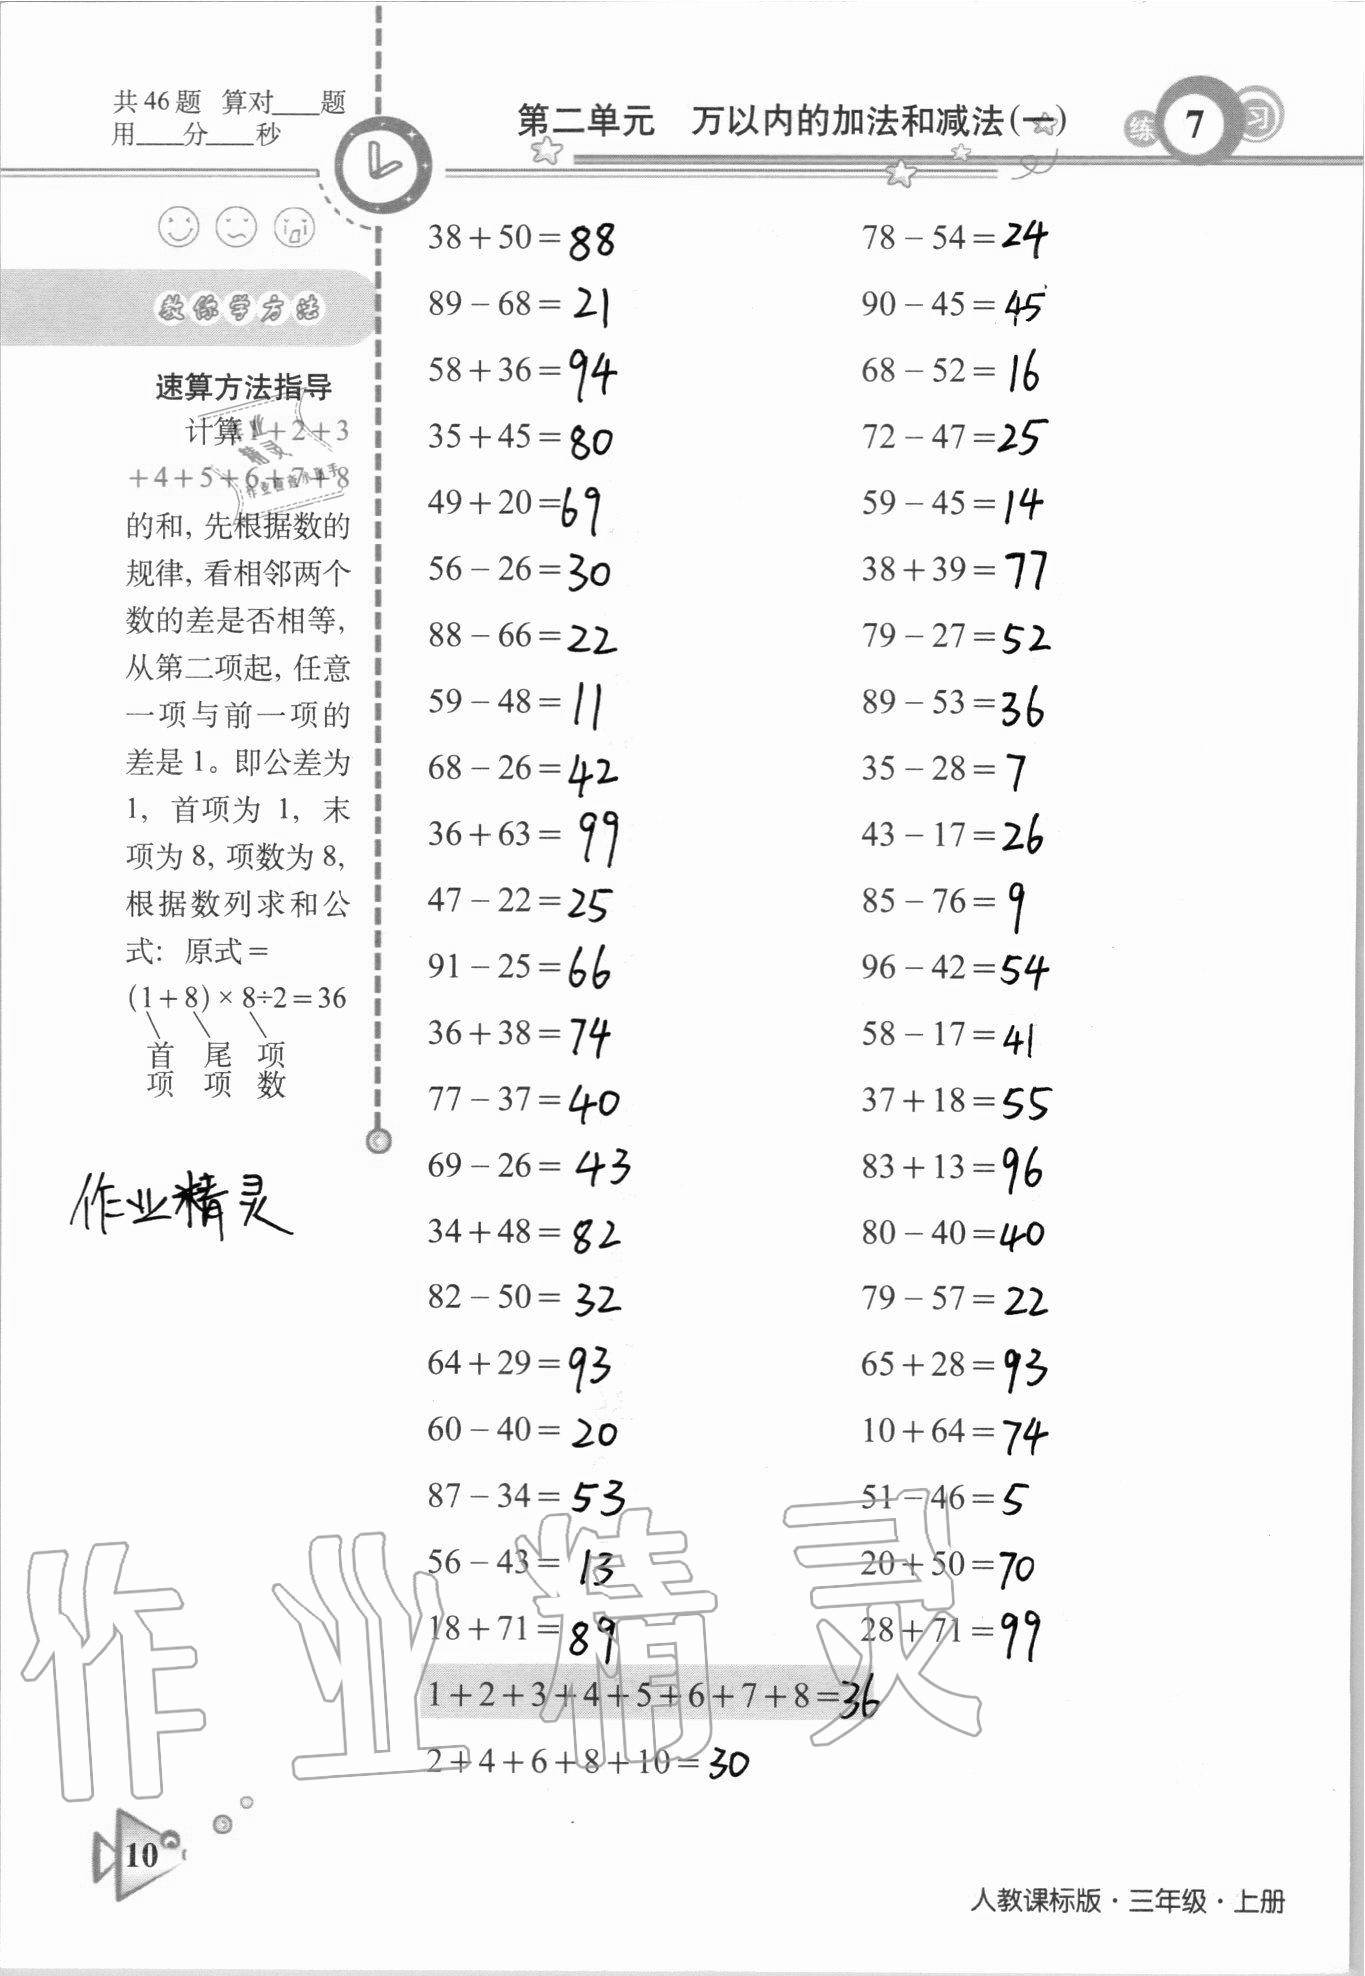 共46题 算对____题
用____分____秒
第二单元 万以内的加法和减法(一)
练 7 习
教你学方法
速算方法指导
计算1+2+3
+4+5+6+7+8
的和, 先根据数的
规律, 看相邻两个
数的差是否相等,
从第二项起, 任意
一项与前一项的
差是1。即公差为
1, 首项为 1, 末
项为8, 项数为8,
根据数列求和公
式: 原式=
(1+8)×8÷2=36
首项 尾项 项数
作业精灵
38+50=88
89-68=21
58+36=94
35+45=80
49+20=69
56-26=30
88-66=22
59-48=11
68-26=42
36+63=99
47-22=25
91-25=66
36+38=74
77-37=40
69-26=43
34+48=82
82-50=32
64+29=93
60-40=20
87-34=53
56-43=13
18+71=89
78-54=24
90-45=45
68-52=16
72-47=25
59-45=14
38+39=77
79-27=52
89-53=36
35-28=7
43-17=26
85-76=9
96-42=54
58-17=41
37+18=55
83+13=96
80-40=40
79-57=22
65+28=93
10+64=74
51-46=5
20+50=70
28+71=99
1+2+3+4+5+6+7+8=36
2+4+6+8+10=30
作业精灵
10
人教课标版·三年级·上册